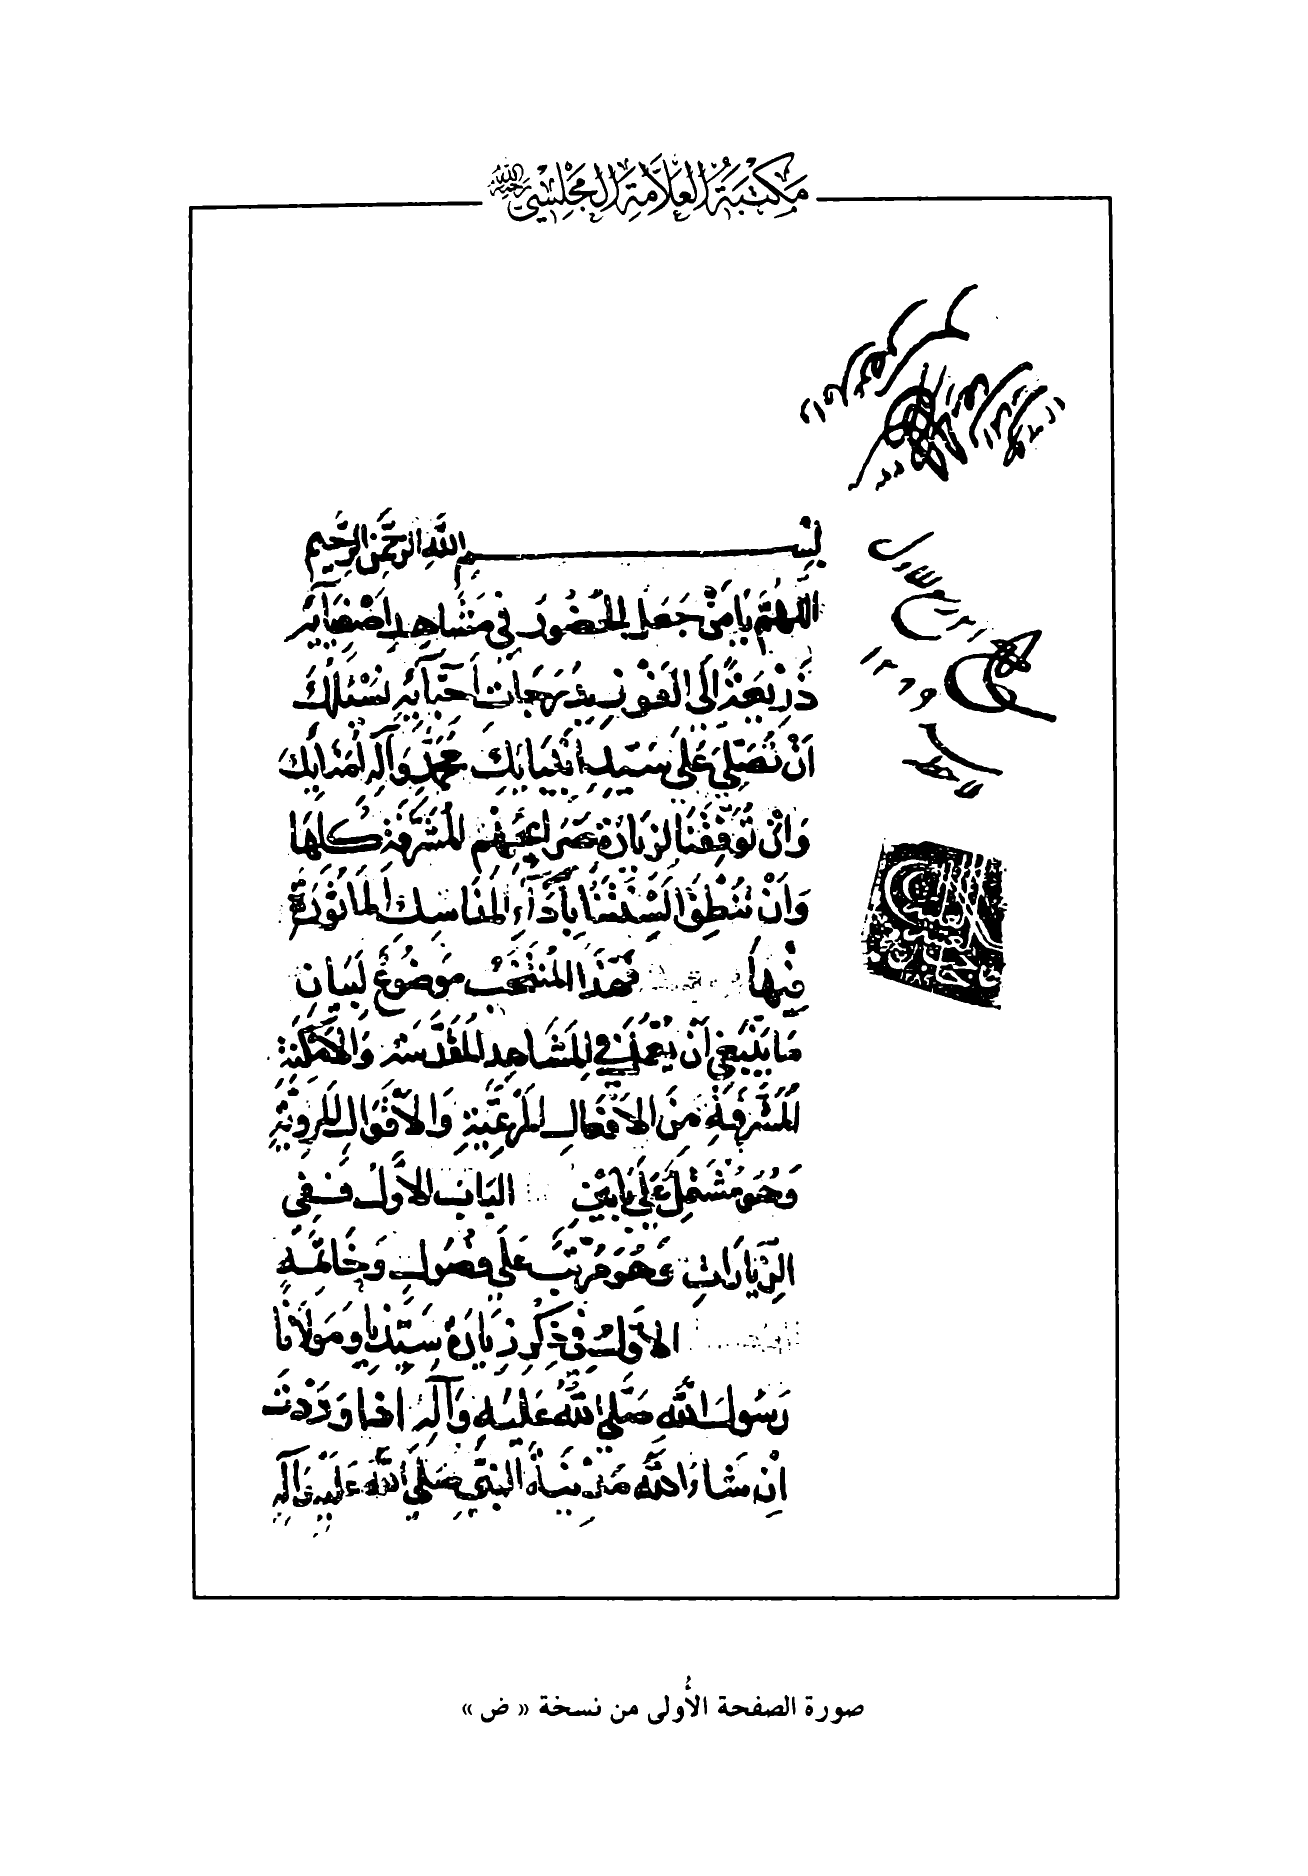 مَكتَبَةُ العَلّامَةِ المَجلِسِي
بِسْمِ اللهِ الرَّحْمنِ الرَّحِيمِ
اَللّهُمَّ يَا مَنْ جَعَلَ الْحُضُورَ فِي مَشَاهِدِ اَصْفِيَآئِهِ
ذَرِيعَةً اِلَى الْفَوْزِ بِدَرَجَاتِ اَحِبَّآئِهِ نَسْئَلُكَ
اَنْ تُصَلِّيَ عَلَى سَيِّدِ اَنْبِيَائِكَ مُحَمَّدٍ وَآلِهِ اُمَنَائِكَ
وَاَنْ تُوَفِّقَنَا لِزِيَارَةِ ضَرَائِحِهِمُ الْمُشَرَّفَةِ كُلِّهَا
وَاَنْ تُنْطِقَ اَلْسِنَتَنَا بِاَدَآءِ الْمَنَاسِكِ الْمَأْثُورَةِ
فِيهَا فَهذَا الْمُنْتَخَبُ مَوْضُوعٌ لِبَيَانِ
مَا يَنْبَغِي اَنْ يُعْمَلَ فِي الْمَشَاهِدِ الْمُقَدَّسَةِ وَالْاَمْكِنَةِ
الْمُشَرَّفَةِ مِنَ الْاَفْعَالِ الْمَرْعِيَّةِ وَالْاَقْوَالِ الْمَرْوِيَّةِ
وَهُوَ مُشْتَمِلٌ عَلَى بَابَيْنِ الْبَابُ الْاَوَّلُ فَفِي
الزِّيَارَاتِ وَهُوَ مُرَتَّبٌ عَلَى فُصُولٍ وَخَاتِمَةٍ
الْاَوَّلُ فِي ذِكْرِ زِيَارَةِ سَيِّدِنَا وَمَوْلَانَا
رَسُولِ اللهِ صَلَّى اللهُ عَلَيْهِ وَآلِهِ اِذَا وَرَدْتَ
اِنْ شَاءَ اللهُ مَدِينَةَ النَّبِيِّ صَلَّى اللهُ عَلَيْهِ وَآلِهِ
١٢٦٩
صورة الصفحة الأُولى من نسخة « ض »